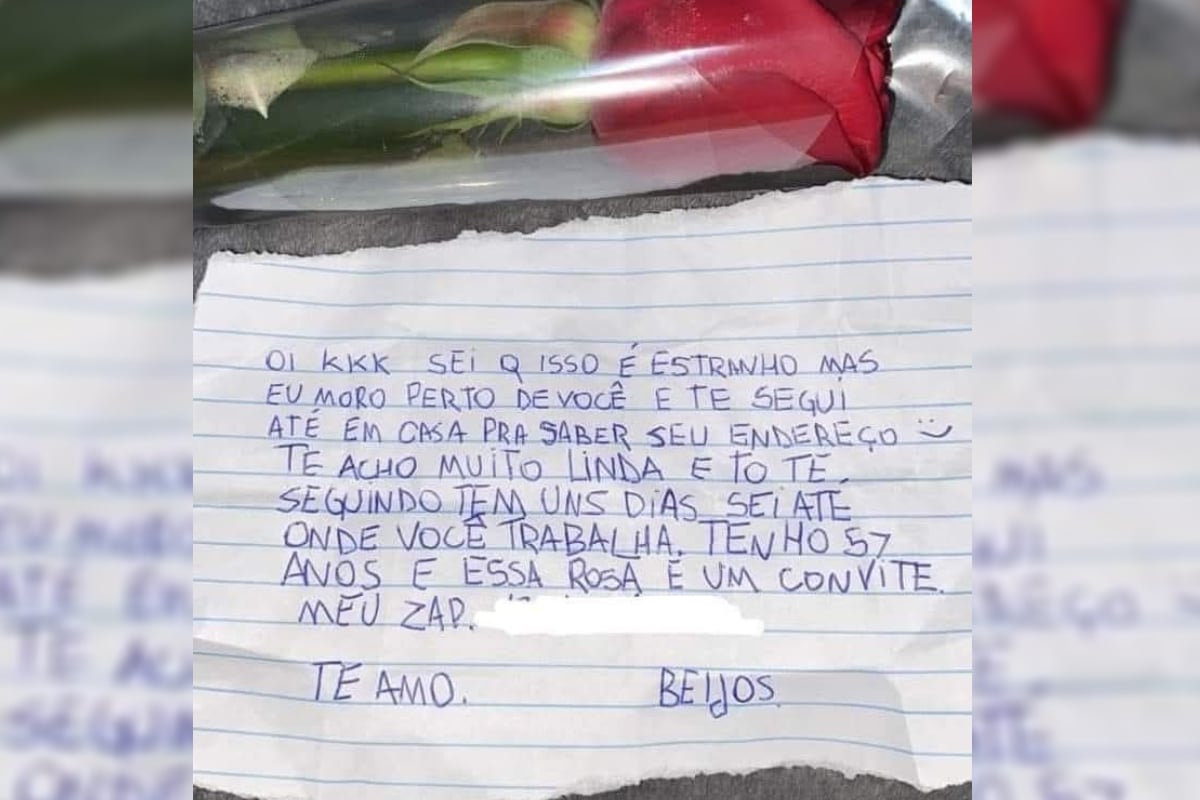 OI KKK SEI Q ISSO É ESTRANHO MAS
EU MORO PERTO DE VOCÊ E TE SEGUI
ATÉ EM CASA PRA SABER SEU ENDEREÇO :)
TE ACHO MUITO LINDA E TO TE
SEGUINDO TEM UNS DIAS SEI ATE
ONDE VOCÊ TRABALHA. TENHO 57
ANOS E ESSA ROSA E UM CONVITE.
MEU ZAP.
TE AMO. BEIJOS.